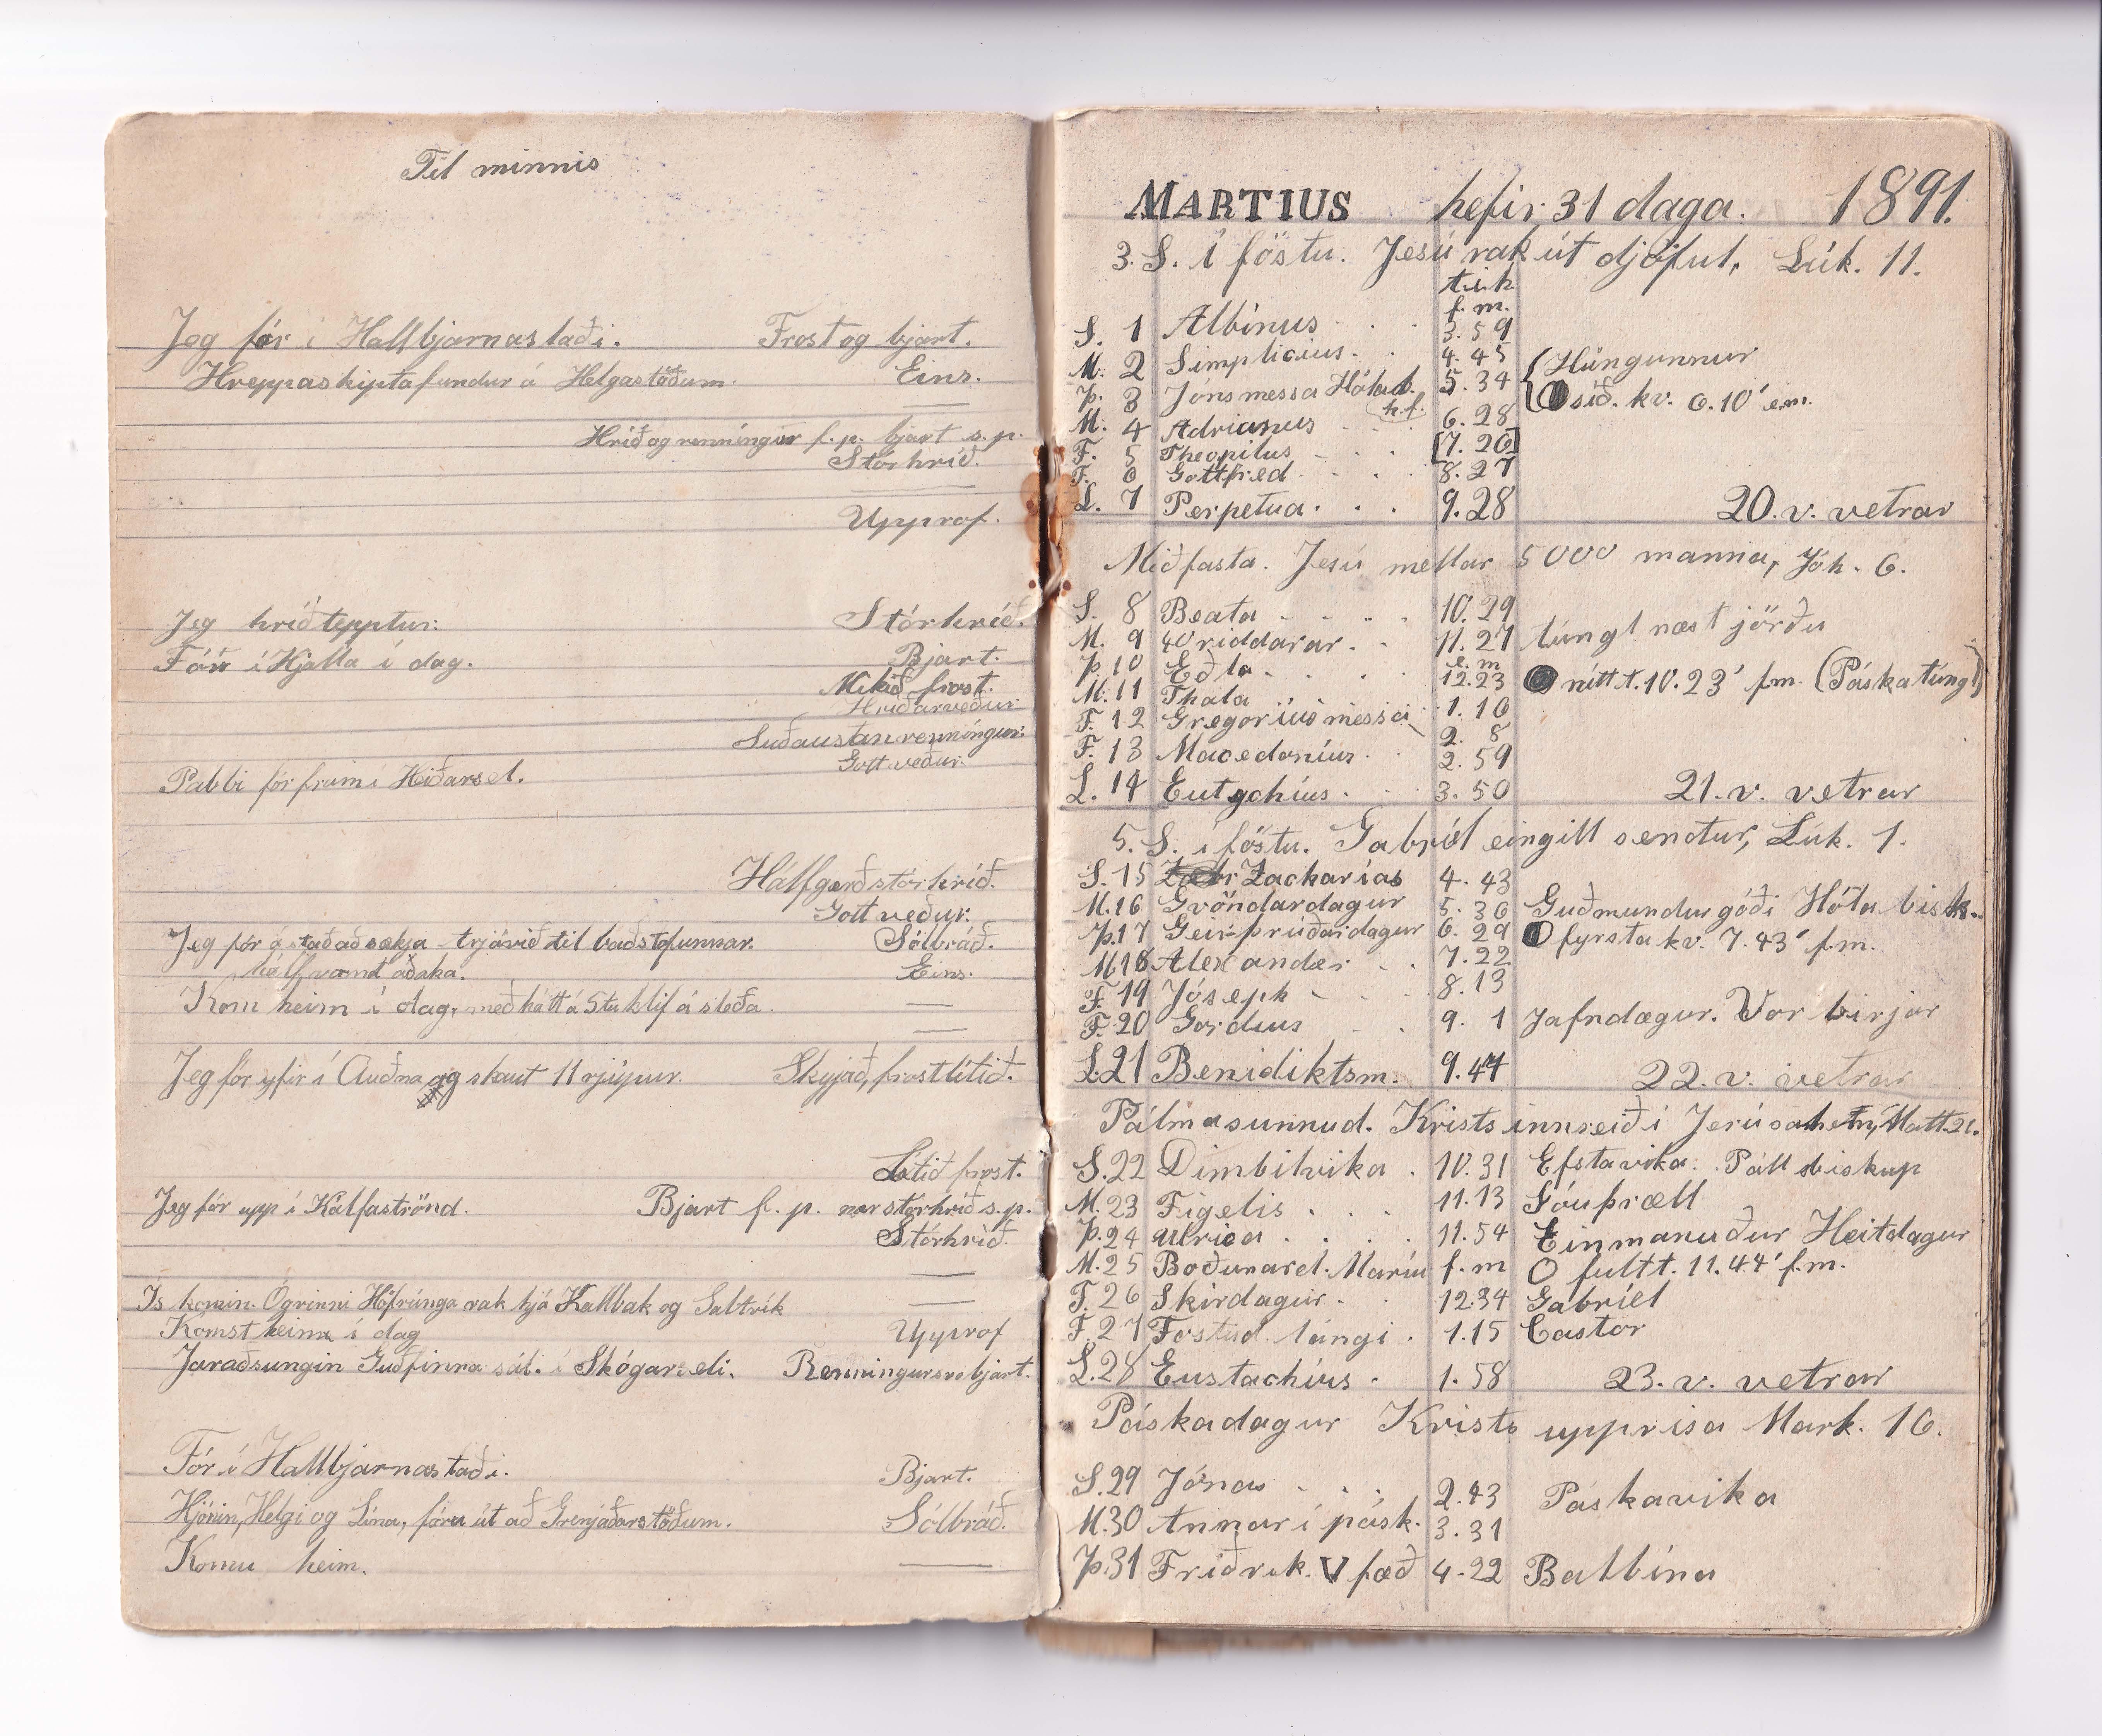 Til minnis
Jeg fór í Hallbjarnastaði. Frost og bjart.
Hreppaskiptafundur á Helgastöðum. Eins.
Hríð og renningur f.p. bjart s.p.
Stórhríð.
Upprof.
Jeg hríðtepptur. Stórhríð.
Fór í Hjalla í dag. Bjart.
Mikið frost.
Hríðarveður
Suðaustanrenningur.
Gott veður
Pabbi fór fram í Heiðarsel.
Hálfgerð stórhríð.
Gott veður.
Jeg fór á stað að sækja trjávið til baðstofunnar. Sólbráð.
hálfvont að aka. Eins.
Kom heim í dag, með kátt á Stuklif á sleða.
Jeg fór yfir í Auðna og skaut 11 rjúpur. Skyjað, frostlítið.
Lítið frost.
Jeg fór upp í Kálfaströnd. Bjart f. p. stórhríð s.p.
Stórhríð.
Ís komin. Ógrinni Höfrúnga rak hjá Kallbak og Saltvík
Komst heim í dag Upprof
Jaraðsungin Guðfinna sál. í Skógarseli. Renningur bjart.
Fór í Hallbjarnastaði. Bjart.
Hjónin, Helgi og Lína, fóru út að Grenjaðarstöðum. Sólbráð.
Komu heim.
MARTIUS hefir 31 daga. 1891.
3. S. í föstu. Jesú rak út djöful, Lúk. 11.
t. í h
f. m.
S. 1 Albínus 3.59
M. 2 Simplicius. 4.45 Hüngunnur
Þ. 3 Jónsmessa Hólab. 5.34 síð. kv. 6.10' em.
h.f.
M. 4 Adrianus 6.28
F. 5 Theopilus [7.26]
F. 6 Gottfred 8.27
L. 7 Perpetua. 9.28 20. v. vetrar
Miðfasta. Jesú mettar 5000 manna, Jóh. 6.
S. 8 Beata 10.29
M. 9 40 riddarar. 11.27 túngl næst jörðu
e. m
Þ. 10 Eðla 12.23 nítt t. 10.23' f.m. (Páskatúngl)
M. 11 Thala 1.16
F. 12 Gregoríusmessa 2. 8
F. 13 Macedoníus. 2.59
L. 14 Eutychíus. 3.50 21. v. vetrar
5. S. í föstu. Gabríel eingill sendur, Luk. 1.
S. 15 Zacharías 4.43
M. 16 Gvöndardagur 5.36 Guðmundur góði Hóla bisk.
Þ. 17 Geirþrúðardagur 6.29 fyrsta kv. 7.43' f.m.
M. 18 Alexander 7.22
F. 19 Jóseph 8.13
F. 20 Gordius 9. 1 Jafndægur. Vor birjar
L. 21 Benidiktsm. 9.47 22. v. vetrar
Pálmasunnud. Krists innreið í Jerúsalem, Matt. 21.
S. 22 Dimbilvika 10.31 Efstavika. Páll biskup
M. 23 Figelis 11.13 Góuþræll
Þ. 24 Ulrica 11.54 Einmanuður Heitdagur
M. 25 Boðunard. Maríu f. m O fullt t. 11.44' f.m.
F. 26 Skírdagur 12.34 Gabríel
F. 27 Föstud. lángi 1.15 Castor
L. 28 Eustachíus 1.58 23. v. vetrar
Páskadagur Krists upprisa Mark. 16.
S. 29 Jónas 2.43 Páskavika
M. 30 Annar í pásk. 3.31
Þ. 31 Friðrik. V fæð 4.22 Balbína